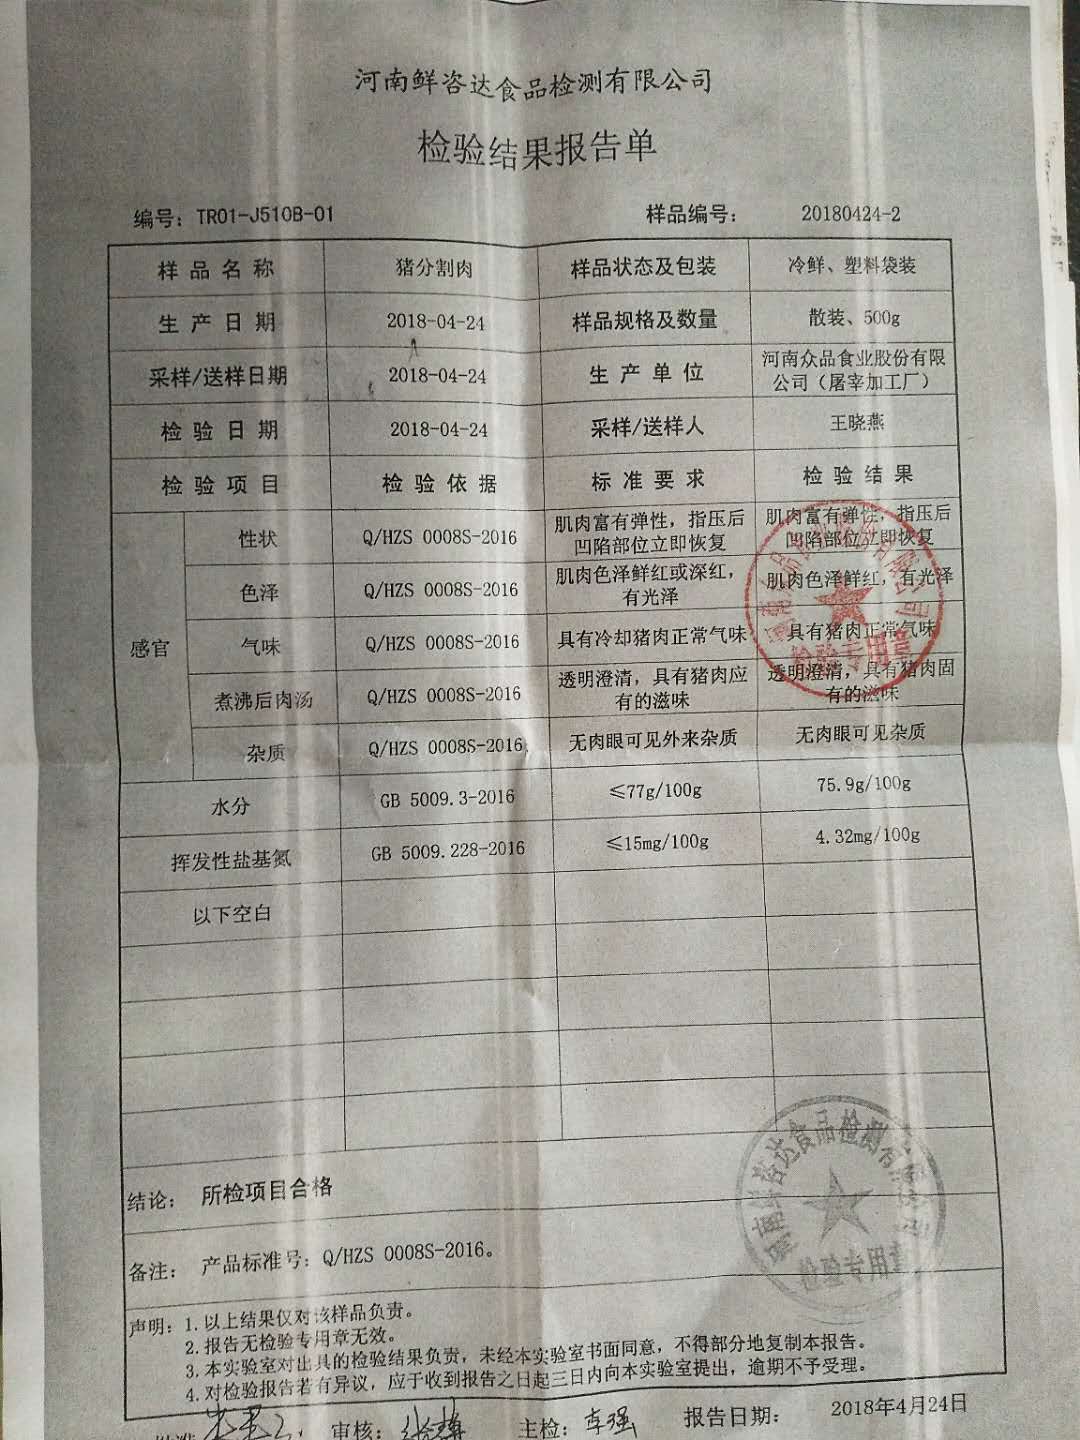 河南鲜咨达食品检测有限公司
检验结果报告单
编号：TR01-J510B-01 样品编号： 20180424-2
样品名称 猪分割肉 样品状态及包装 冷鲜、塑料袋装
生产日期 2018-04-24 样品规格及数量 散装、500g
采样/送样日期 2018-04-24 生产单位 河南众品食业股份有限
公司（屠宰加工厂）
检验日期 2018-04-24 采样/送样人 王晓燕
检验项目 检验依据 标准要求 检验结果
感官
性状 Q/HZS 0008S-2016 肌肉富有弹性，指压后 肌肉富有弹性，指压后
凹陷部位立即恢复 凹陷部位立即恢复
色泽 Q/HZS 0008S-2016 肌肉色泽鲜红或深红， 肌肉色泽鲜红，有光泽
有光泽
气味 Q/HZS 0008S-2016 具有冷却猪肉正常气味 具有猪肉正常气味
煮沸后肉汤 Q/HZS 0008S-2016 透明澄清，具有猪肉应 透明澄清，具有猪肉固
有的滋味 有的滋味
杂质 Q/HZS 0008S-2016 无肉眼可见外来杂质 无肉眼可见杂质
水分 GB 5009.3-2016 ≤77g/100g 75.9g/100g
挥发性盐基氮 GB 5009.228-2016 ≤15mg/100g 4.32mg/100g
以下空白
检验专用章
结论： 所检项目合格
备注： 产品标准号：Q/HZS 0008S-2016。
河南鲜咨达食品检测有限公司
检验专用章
声明：1. 以上结果仅对该样品负责。
2. 报告无检验专用章无效。
3. 本实验室对出具的检验结果负责，未经本实验室书面同意，不得部分地复制本报告。
4. 对检验报告若有异议，应于收到报告之日起三日内向本实验室提出，逾期不予受理。
审核： 主检：李强 报告日期： 2018年4月24日